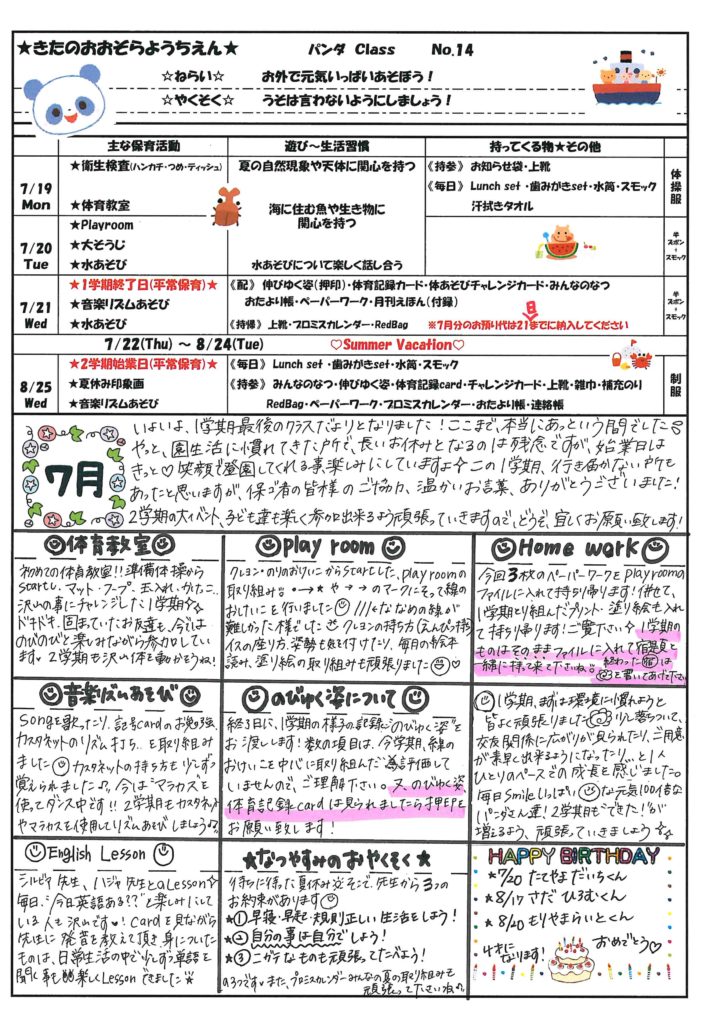 ★きたのおおぞらようちえん★　パンダ Class　No.14
☆ねらい☆　お外で元気いっぱいあそぼう！
☆やくそく☆　うそは言わないようにしましょう！
主な保育活動　遊び～生活習慣　持ってくる物★その他
7/19 Mon
★衛生検査(ハンカチ・つめ・ティッシュ)
★体育教室
夏の自然現象や天体に関心を持つ
《持参》 お知らせ袋・上靴
《毎日》 Lunch set ・歯みがきset・水筒・スモック
汗拭きタオル
体操服
7/20 Tue
★Playroom
★大そうじ
★水あそび
海に住む魚や生き物に
関心を持つ
水あそびについて楽しく話し合う
半ズボン＋スモック
7/21 Wed
★1学期終了日(平常保育)★
★音楽リズムあそび
★水あそび
《配》 伸びゆく姿(押印)・体育記録カード・体あそびチャレンジカード・みんなのなつ
おたより帳・ペーパーワーク・月刊えほん(付録)
《持帰》 上靴・プロミスカレンダー・RedBag
※7月分のお預り代は21日までに納入してください
半ズボン＋スモック
7/22(Thu) ～ 8/24(Tue)　♡Summer Vacation♡
8/25 Wed
★2学期始業日(平常保育)★
★夏休み印象画
★音楽リズムあそび
《毎日》 Lunch set ・歯みがきset・水筒・スモック
《持参》 みんなのなつ・伸びゆく姿・体育記録card・チャレンジカード・上靴・雑巾・補充のり
RedBag・ペーパーワーク・プロミスカレンダー・おたより帳・連絡帳
制服
7月
いよいよ、1学期最後のクラスだよりとなりました！ここまで、本当にあっという間でした
やっと、園生活に慣れてきた所で、長いお休みとなるのは残念ですが、始業日は
きっと♡笑顔で登園してくれる事楽しみにしていますよ☆この1学期、行き届かない所も
あったと思いますが、保ゴ者の皆様のご協力、温かいお言葉、ありがとうございました！
2学期の大イベント、子ども達も楽しく参加出来るよう頑張っていきますので、どうぞ、宜しくお願い致します！
体育教室
初めての体育教室！！準備体操から
startし、マット・フープ、玉入れ、かたここ…
沢山の事にチャレンジした1学期☆
ドキドキ、固まっていたお友達も、今では
のびのびと楽しみながら参加してい
ます♥2学期も沢山体を動かそうね！
play room
クレヨン・のりのおけいこからstartした、playroomの
取り組み。・→・★や→→のマークにそって線の
おけいこを行いました ///←ななめの線が
難しかった様でした クレヨンの持ち方(えんぴつ持ち)
イスの座り方、姿勢も気を付けたり、毎日の絵本
読み、塗り絵の取り組みも頑張りました♡
Home work
今回3枚のペーパーワークをplayroomの
ファイルに入れて持ち帰ります！併せて、
1学期とり組んだプリント・塗り絵も入れ
て持ち帰ります！ご覧下さい☆1学期の
ものはそのままファイルに入れて宿題と
一緒に持って来て下さいね。
終わった
を書いてあげて下さい。
音楽リズムあそび
songを歌ったり、記号cardのお勉強、
カスタネットのリズム打ち…を取り組み
ました カスタネットの持ち方も少しずつ
覚えられました♪。今は"マラカス"を
使ってダンス中です！！2学期もカスタネット
やマラカスを使用してリズムあそびしましょう♪。
のびゆく姿について
終了日に、1学期の様子の記録"のびゆく姿"を
お渡しします！数の項目は、今学期、線の
おけいこを中心に取り組んだ為評価して
いませんので、ご理解下さい。又、のびゆく姿、
体育記録cardは見られましたら押印を
お願い致します！
1学期、まずは環境に慣れようと
皆よく頑張りました 少し落ちついて、
交友関係に広がりが見られたり、ご用意
が素早く出来るようになったり…と1人
ひとりのペースでの成長を感じました。
毎日Smileいっぱい な元気100倍な
パンダさん達！2学期も"できた！"が
増えるよう、頑張っていきましょう☆
English Lesson
シルビィア先生、ハジャ先生とのlesson☆
毎日、"今日英語ある？？"と楽しみにして
いる人も沢山です♥！cardを見ながら
先生に発音を教えて頂き身についた
ものは、日常生活の中で少しずつ単語を
聞く事も 楽しくLessonできました★
★なつやすみのおやくそく★
待ちに待った夏休み☆そこで、先生から3つの
お約束があります
★①早寝・早起・規則正しい生活をしよう！
★②自分の事は自分でしよう！
★③ニガテなものも頑張ってたべよう！
の3つです♥また、プロミスカレンダー、みんなの夏の取り組みも
頑張って下さいね♪。
HAPPY BIRTHDAY
★7/20 たてやまだいちくん
★8/17 さだ ひろむくん
★8/20 もりやまらいとくん
4才に
なります！
おめでとう♡